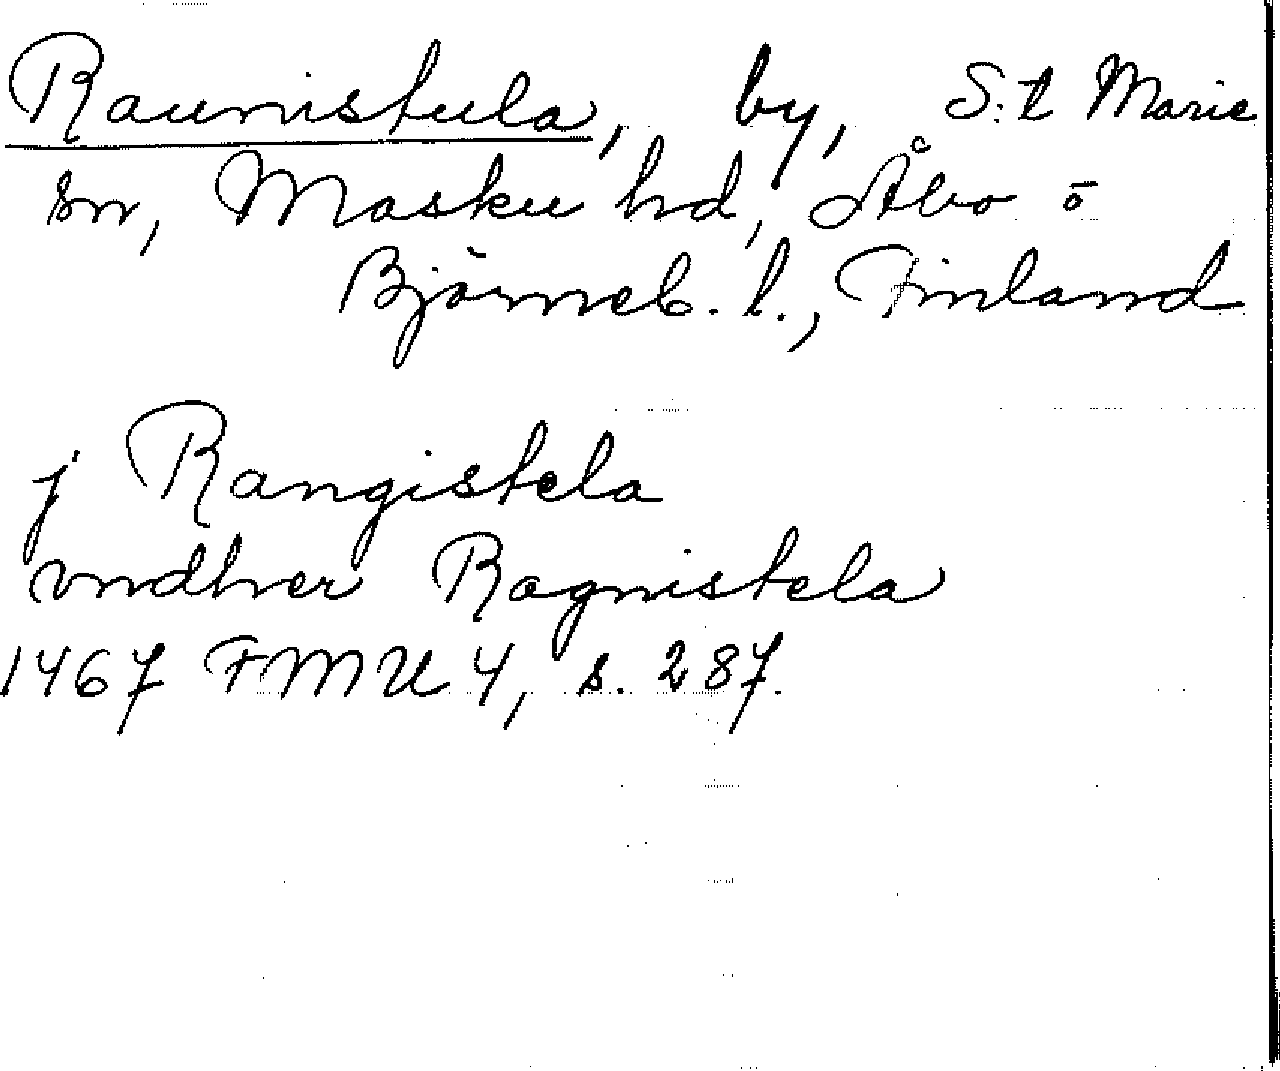 Raunistula, by, S:t Marie
sn, Masku hd, Åbo o
Björneb. l., Finland
j Rangistela
vndher Ragnistela
1467 FMU 4, s. 287.